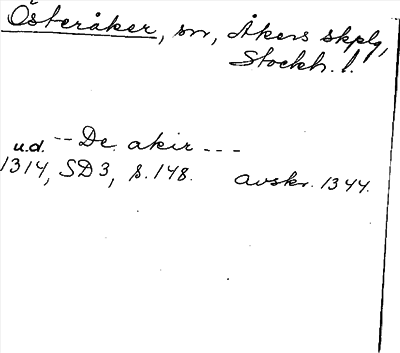 Österåker, sn, Åkers skplg,
Stockh. l.
u.d. -- De akir ---
1314, SD 3, s. 148. avskr. 1344.